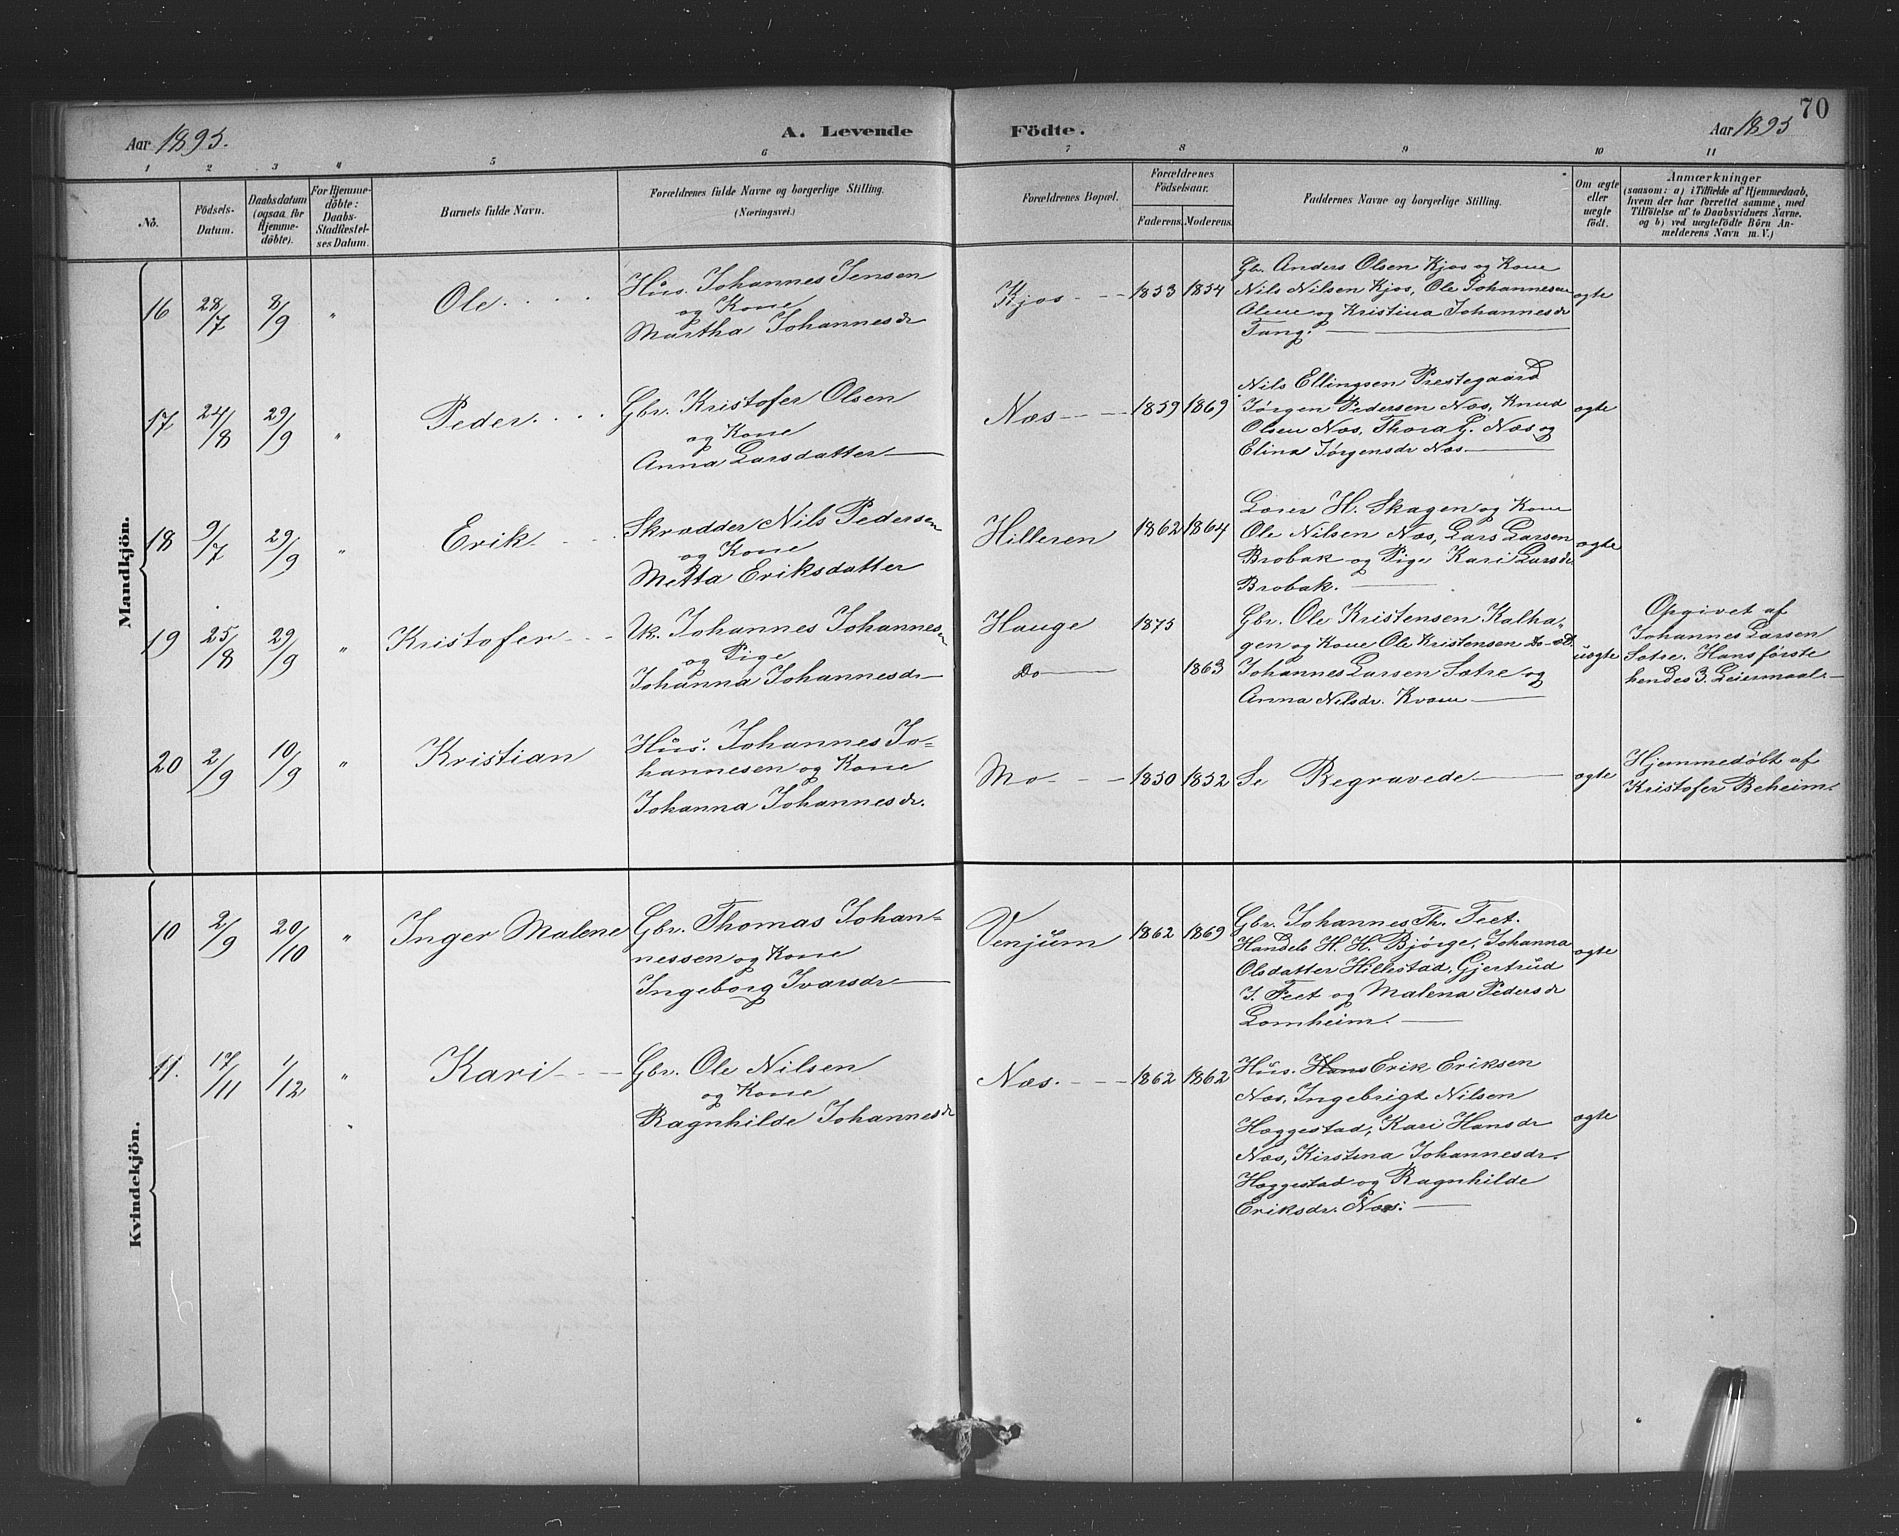 70
Aar 1895.
A. Levende
Födte.
Aar 1895
1 2 3 4 5 6 7 8 9 10 11
No.
Födsels-
Datum.
Daabsdatum
(ogsaa for
Hjemme-
döbte).
For Hjemme-
döbte:
Daabs-
Stadfæstel-
ses Datum.
Barnets fulde Navn.
Forældrenes fulde Navne og borgerlige Stilling.
(Næringsvei.)
Forældrenes Bopæl.
Forældrenes
Födselsaar.
Faderens.
Moderens.
Faddernes Navne og borgerlige Stilling.
Om ægte
eller
uægte
födt.
Anmærkninger
(saasom: a) i Tilfælde af Hjemmedaab,
hvem der har forrettet samme, med
Tilföielse af to Daabsvidners Navne.
og b) ved uægtefödte Börn An-
melderens Navn m. V.)
Mandkjön.
16
28/7
8/9
"
Ole
Hus. Johannes Jensen
og Kone
Martha Johannesdr
Kjos
1853
1854
Gb. Anders Olsen Kjos og Kone
Nils Nilsen Kjos, Ole Johannesen
og Kristina Johannesdr
Tang.
ægte
17
24/8
29/9
"
Peder
Gbr. Kristofer Olsen
og Kone
Anna Larsdatter
Næs
1859
1869
Nils Ellingsen Prestegaard
Jørgen Pedersen Næs, Knud
Olsen Næs, Thora G. Næs og
Elina Jørgensdr Næs
ægte
18
9/7
29/9
"
Erik
Skrædder Nils Pedersen
og Kone
Metta Eriksdatter
Hilleren
1862
1864
H. Skagen og Kone
Ole Nilsen Næs, Lars Larsen
Brobak og Pige Kari Larsdr
Brobak.
ægte
19
25/8
29/9
"
Kristofer
Uk. Johannes Johannesen
og Pige
Johanna Johannesdr
Hauge
Do
1875
1863
Gbr. Ole Kristensen Kalha-
gen og Kone Ole Kristensen
Johannes Larsen Sætre og
Anna Nilsdr. Kvam
uægte
Opgivet af
Johannes Larsen
Sætre. Hans første
hendes 3. Leiermaal.
20
2/9
10/9
"
Kristian
Hus. Johannes Jo-
hannesen og Kone
Johanna Johannesdr.
Mo
1850
1852
Se Begravede
ægte
Hjemmedøbt af
Kristofer Beheim.
Kvindekjön.
10
2/9
20/10
"
Inger Malene
Gbr. Thomas Johan-
nessen og Kone
Ingeborg Ivarsdr
Venjum
1862
1869
Gbr. Johannes Th. Feet.
Handels H. H. Bjørge, Johanna
Olsdatter Hillestad, Gjertrud
J. Feet og Malena Pedersdr
Lomheim.
ægte
11.
17/11
1/12
"
Kari
Gbr. Ole Nilsen
og Kone
Ragnhilde Johannesdr
Næs.
1862
1862
Hus. Hans Erik Eriksen
Næs, Ingebrigt Nilsen
Hæggestad, Kari Hansdr
Næs, Kirstina Johannesdr.
Hæggestad og Ragnhilde
Eriksdr. Næs.
ægte